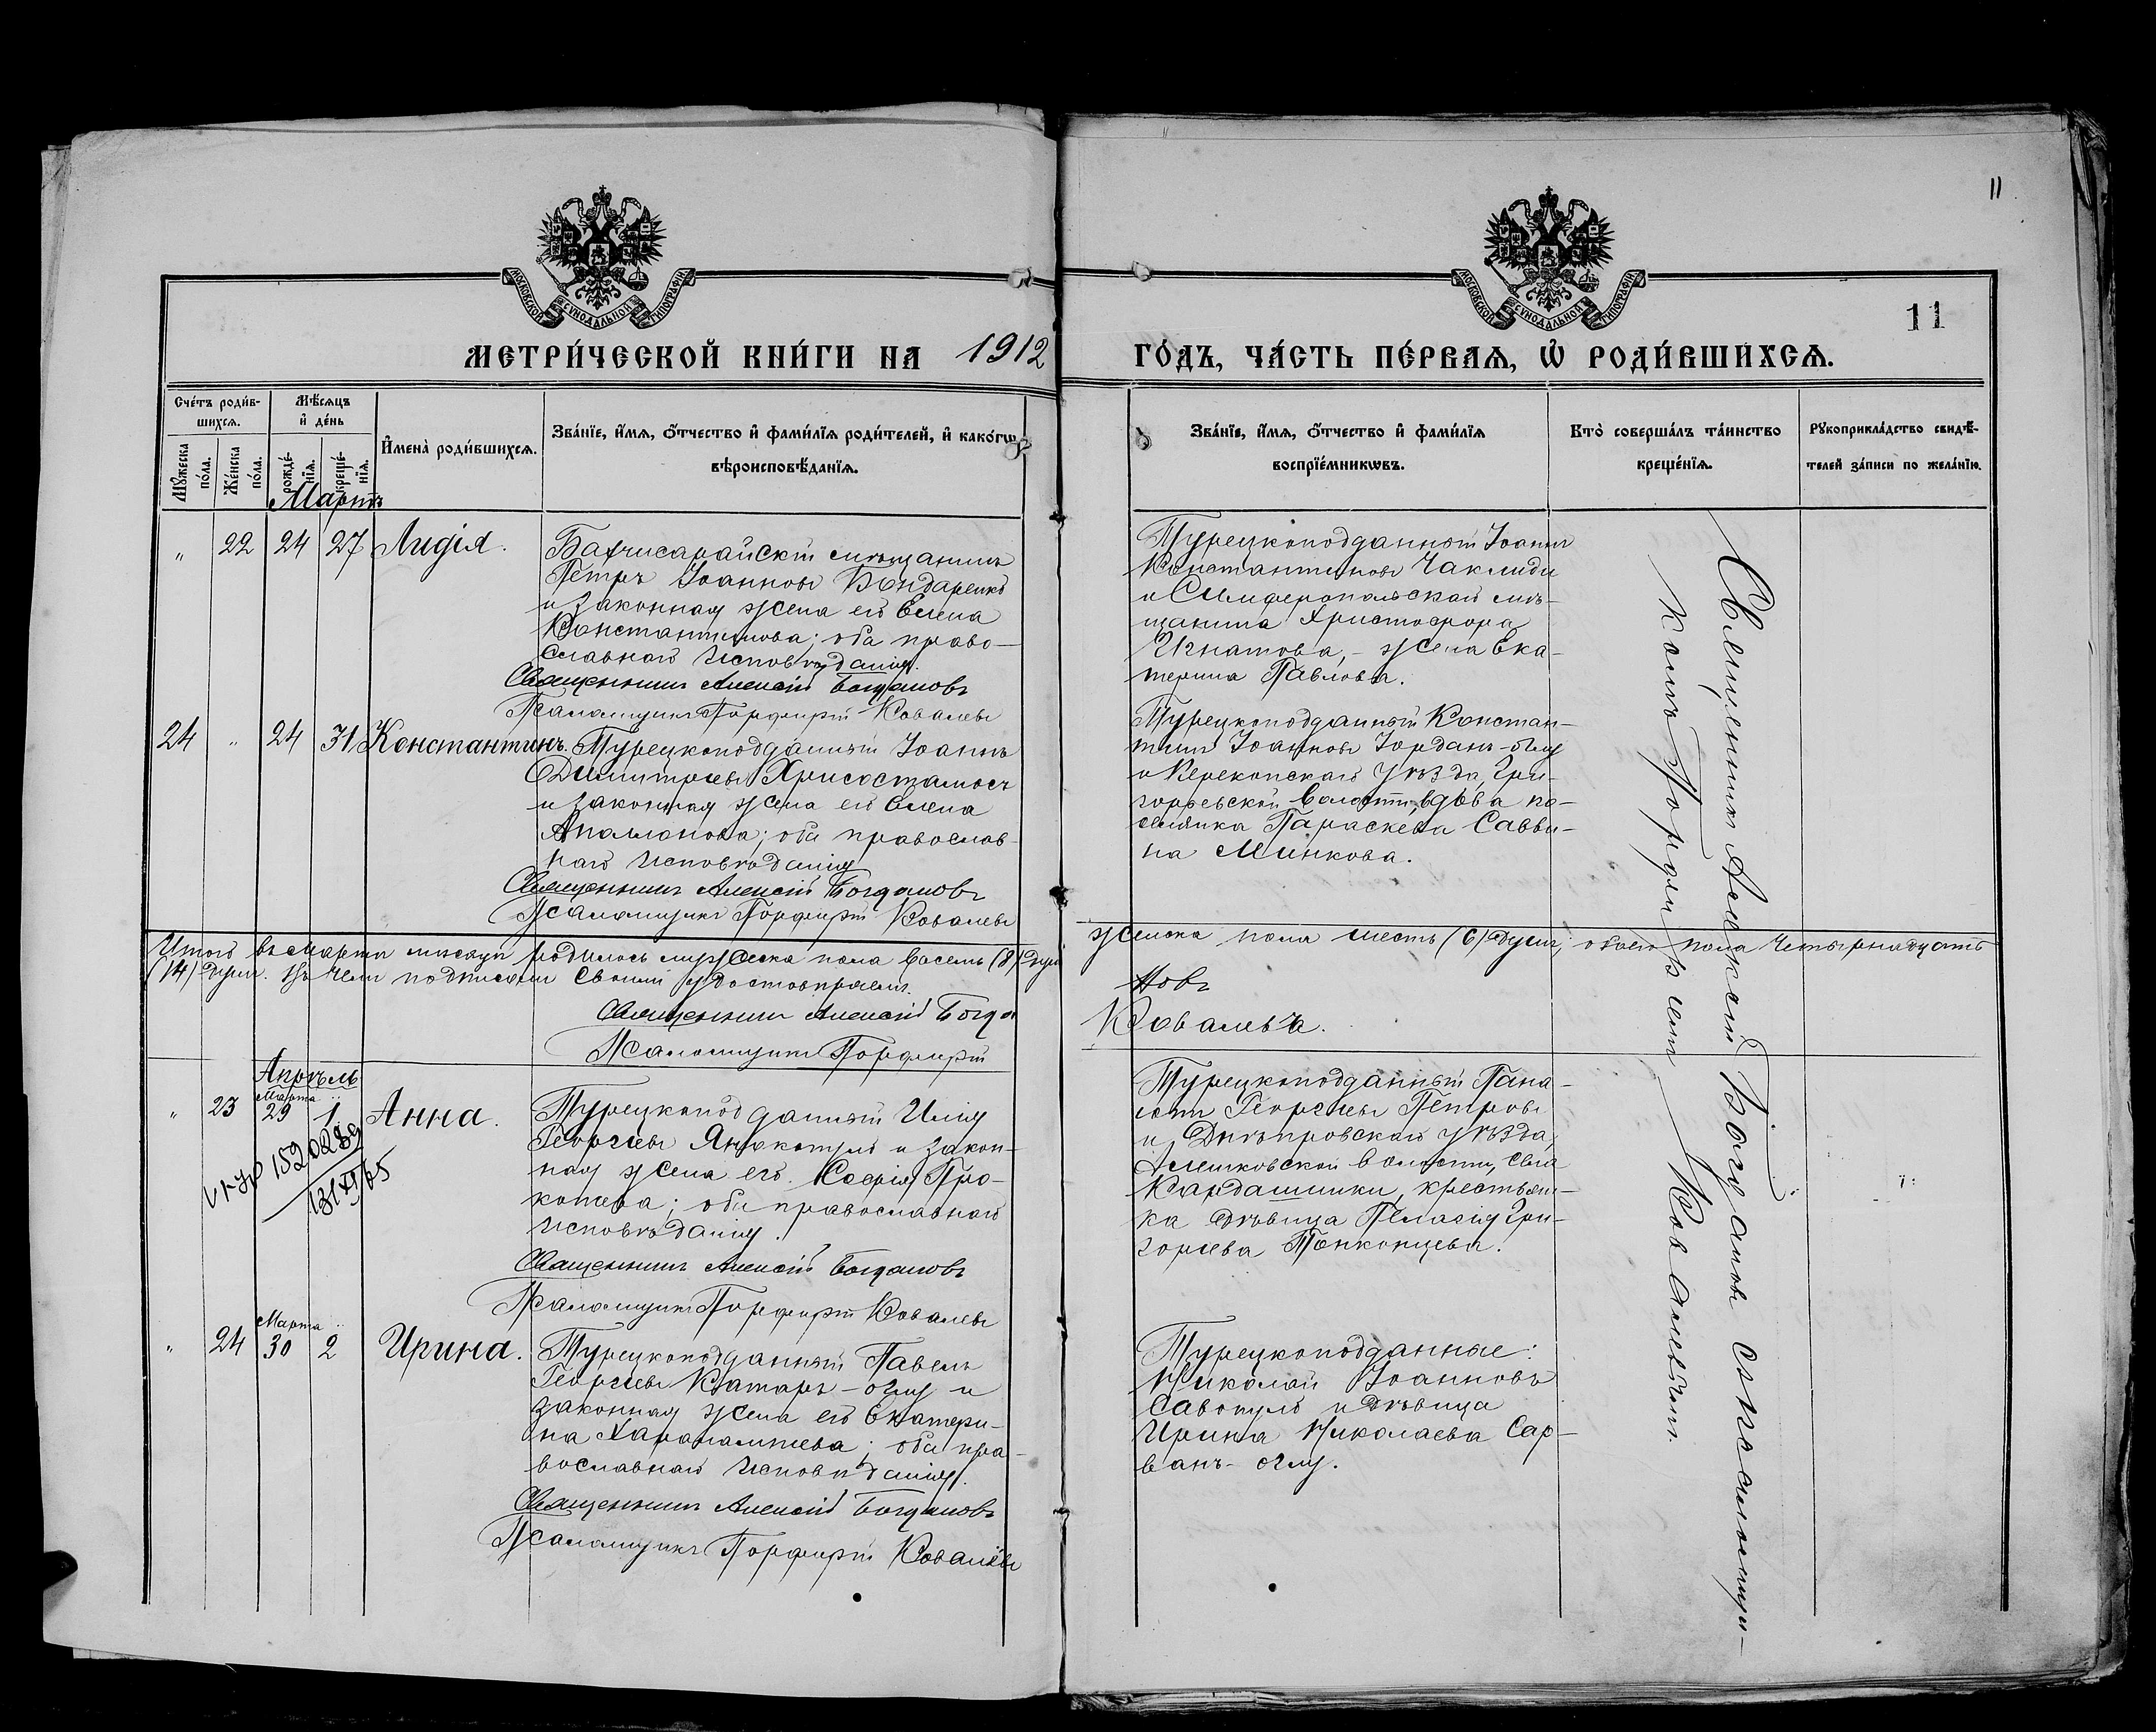 11
11
МОСКОВСКОЙ СѴНОДАЛЬНОЙ ТИПОГРАФІИ
МОСКОВСКОЙ СѴНОДАЛЬНОЙ ТИПОГРАФІИ
МЕТРИ́ЧЕСКОЙ КНИ́ГИ НА 1912
ГО́ДЪ, ЧА́СТЬ ПЕ́РВАѦ, Ѡ҆ РОДИ́ВШИХСѦ.
Сче́тъ роди́в-
шихсѧ.
Мꙋ́жеска по́ла.
Же́нска по́ла.
Мѣ́сѧцъ
и҆ де́нь
рожде́-
нїѧ.
креще́-
нїѧ.
И҆мена̀ роди́вшихсѧ.
Зва́нїе, и҆́мѧ, ѻ҆́тчество и҆ фами́лїѧ роди́телей, и҆ како́гѡ
вѣроисповѣ́данїѧ.
Зва́нїе, и҆́мѧ, ѻ҆́тчество и҆ фами́лїѧ
воспрїе́мникѡвъ.
Кто̀ соверша́лъ та́инство
креще́нїѧ.
Рꙋкоприкла́дство свидѣ́-
телей за́писи по жела́нїю.
Мартъ
„ 22 24 27 Лидія.
Бахчисарайскій мѣщанинъ
Петръ Іоанновъ Бондаренко
и законная жена его Елена
Константинова; оба право-
славнаго исповѣданія.
Священникъ Алексій Богдановъ
Псаломщикъ Порфирій Ковалевъ
Турецкоподданный Іоаннъ
Константиновъ Чаклиди
и Симферопольскаго мѣ-
щанина Христофора
Игнатова, - жена Ека-
терина Павлова.
24 „ 24 31 Константинъ.
Турецкоподданный Іоаннъ
Димитріевъ Хрисостамосъ
и законная жена его Елена
оба православ-
наго исповѣданія
Священникъ Алексій Богдановъ
Псаломщикъ Порфирій Ковалевъ
Турецкоподданный Констан-
тинъ Іоанновъ Іорданъ-оглу
и Перекопскаго уѣзда, Гри-
горьевской волости, вдова по-
селянка Параскева Савви-
на Минкова.
Итого въ мартѣ мѣсяцѣ родилось мужеска пола восемь (8) душъ
женска пола шесть (6) душъ, обоего пола четырнадцать
(14) душъ. Въ чемъ подписями своими удостовѣряемъ.
Священникъ Алексій Богда
новъ
Псаломщикъ Порфирій
Ковалевъ.
Апрѣль
„ 23 Марта 29 1 Анна.
152028
131XI65
Турецкоподданный Илія
Георгіевъ и закон-
ная жена его Софія Про-
копіева; оба православнаго
исповѣданія.
Священникъ Алексій Богдановъ
Псаломщикъ Порфирій Ковалевъ
Турецкоподданный Пана-
Георгіевъ Петровъ
и Днѣпровскаго уѣзда,
Алешковской волости, села
Кардашинки, крестьян-
ка дѣвица Пелагія Гри-
горіева
„ 24 Марта 30 2 Ирина.
Турецкоподданный Павелъ
Георгіевъ Катаръ-оглу и
законная жена его Екатери-
на Харалампіева; оба пра-
вославнаго исповѣданія.
Священникъ Алексій Богдановъ
Псаломщикъ Порфирій Ковалевъ
Турецкоподданные:
Николай Іоанновъ
Савопуло и дѣвица
Ирина Николаева Сар-
ванъ-оглу.
Священникъ Алексій Богдановъ съ псаломщи-
комъ Порфиріемъ Ковалевымъ.